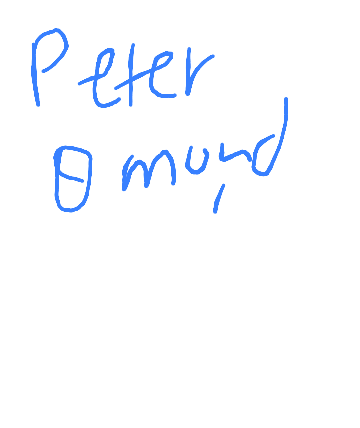 Peter
θmund